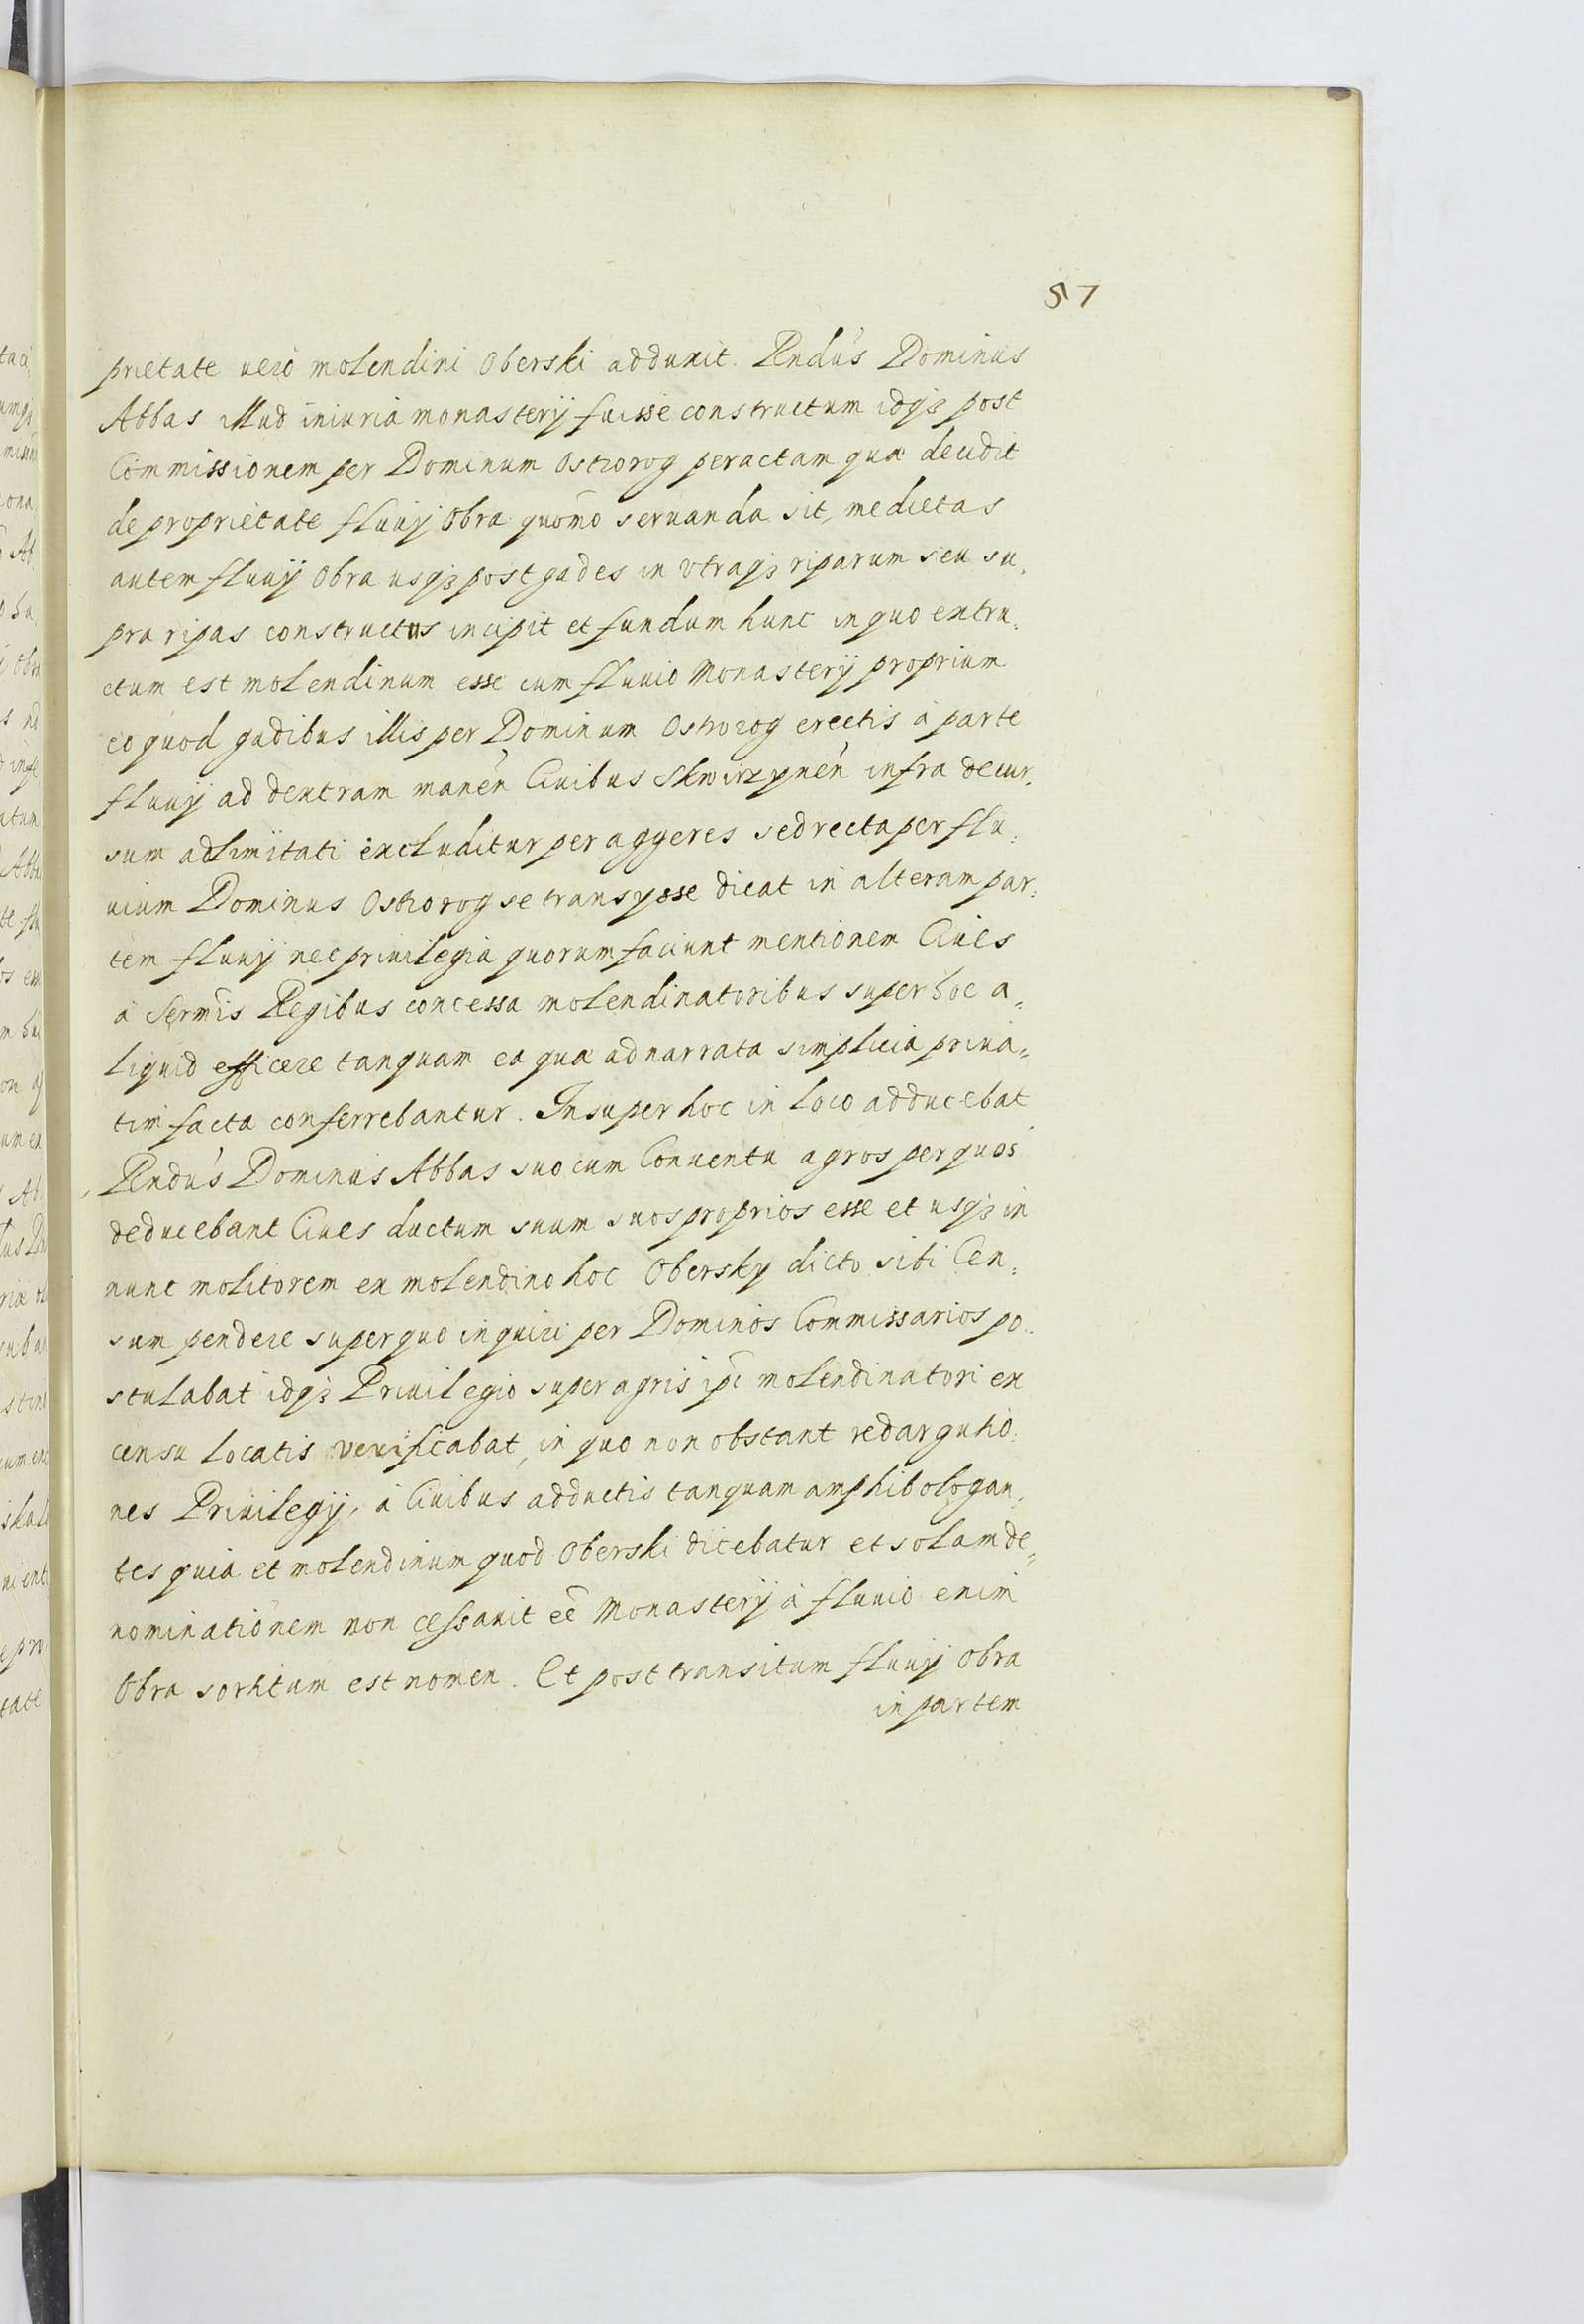 57
prietate uero molendini Oberski adduxit. Rndus Dominus
Abbas illud iniuria monasterij fuisse constructum idqz post
Commissionem per Dominum Ostrorog peractam qua decidit
de proprietate fluuij Obra quomo seruanda sit, medietas
autem fluuij Obra usqz post gades in vtraqz riparum seu su,
pra ripas constructus incipit et fundum hunc in quo extru,
ctum est molendinum esse cum fluuio Monasterij proprium
eo quod gadibus illis per Dominum Ostrorog erectis à parte
fluuij ad dextram manen Ciuibus Skwirzynen infra decur,
sum adlimitati excluditur per aggeres sed recta per flu,
uium Dominus Ostrorog se transysse dicat in alteram par,
tem fluuij nec priuilegia quorum faciunt mentionem Ciues
à Sermis Regibus concessa molendinatoribus super hoc a,
liquid efficere tanquam ea qua ad narrata simplicia priua,
tim facta conferrebantur. Insuper hoc in loco adducebat
Rndus Dominus Abbas suo cum Conuentu agros per quos
deducebant Ciues ductum suum suos proprios esse et usqz in
nunc molitorem ex molendino hoc Obersky dicto sibi Cen,
sum pendere super quo inquiri per Dominos Commissarios po,
stulabat idqz Priuilegio super agris ipi molendinatori ex
censu locatis verificabat, in quo non obstant redargutio,
nes Priuilegij, à Ciuibus adductis tanquam amphibologan,
tes quia et molendinum quod Oberski dicebatur et solam de,
nominationem non cessauit eē Monasterij à fluuio enim
Obra sortitum est nomen. Et post transitum fluuij Obra
in partem